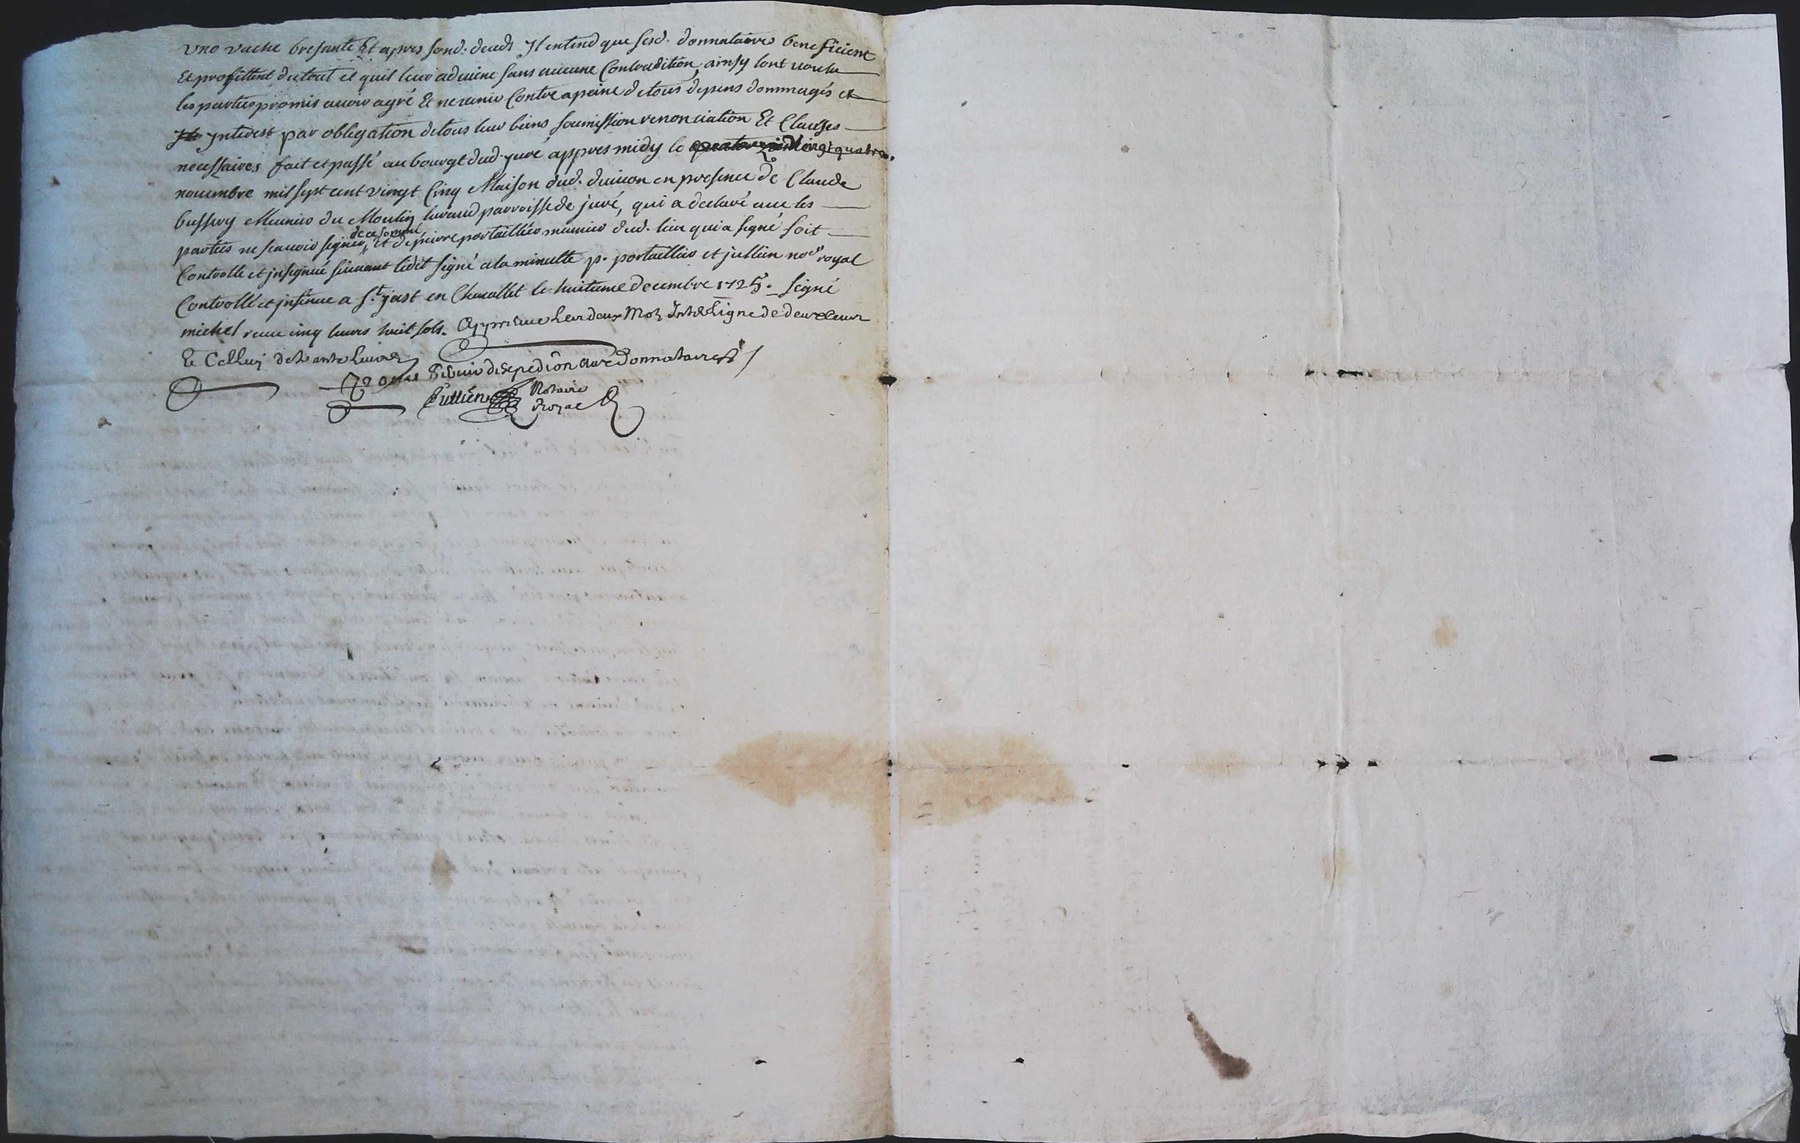 une vache bresante Et apres sond. deceds Il entend que sesd. donnataires beneficient
Et profittent du tout et quil leur adviene sans aucune Contradition ainsy lont voulu
les parties promis avoir agré Et ne venir Contre a peine de tous depens dommages et
Interest par obligation de tous leur biens soumission renonciation Et Clauses
necessaires fait et passé au bourgt dud. juré appres midy le Vingt quatre
novembre mil sept cent vingt Cinq Maison dud. en presence de Claude
Meunier du Moulin parroisse de juré, qui a declaré avec les
parties ne scavoir signer de ce sommé, et portaillier meunier dud. lieu qui a signé soit
Controllé et insignué suivant ledit signé a la minutte p. portaillier et jullien nore royal
Controllé et insinué a St just en Chevallet le huitieme decembre 1725. signé
michel receu cinq livres huit sols. Approuve les deux Mots Interligne de
Et Celluy de
expedion Aux Donnataires
Jullien Notaire
Royal